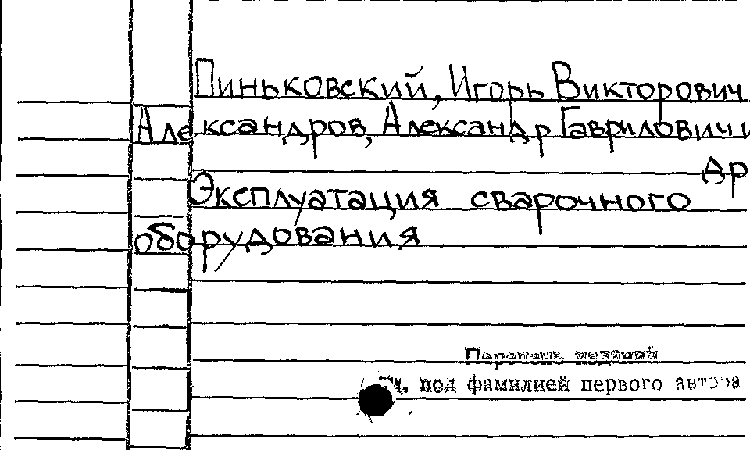 Пиньковский, Игорь Викторович
Александров, Александр Гаврилович и
др
Эксплуатация сварочного
оборудования
Перечень изданий
См. под фамилией первого автора